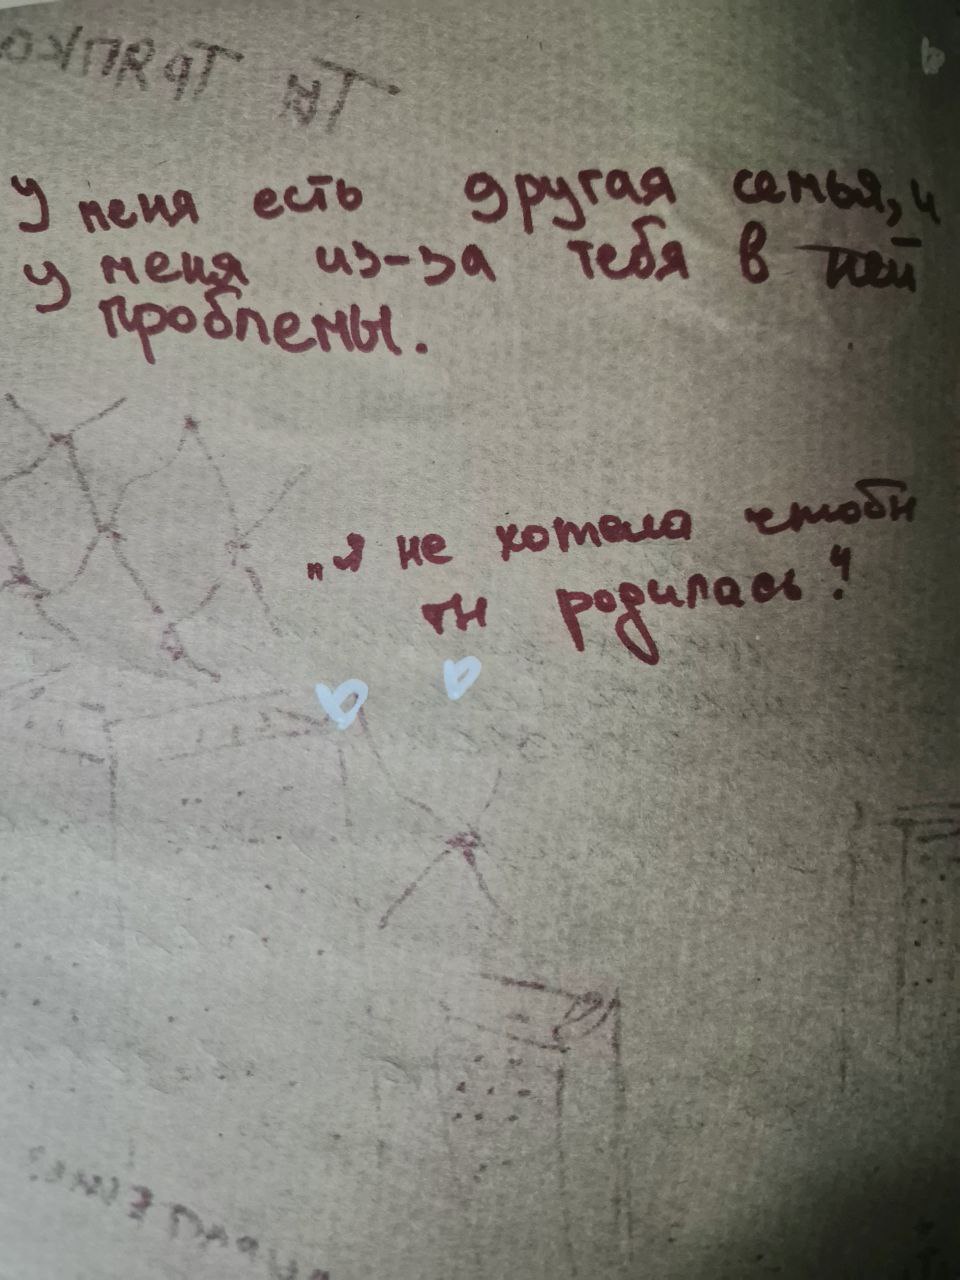 У меня есть другая семья, и
у меня из-за тебя в ней
проблемы.
„Я не хотела чтобы
ты родилась“